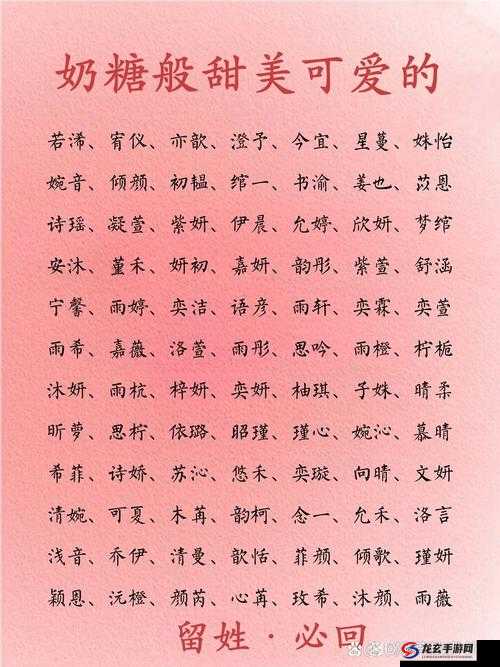 奶糖般甜美可爱的
若浠、宥仪、亦歆、澄予、今宜、星蔓、姝怡
婉音、倾颜、初韫、绾一、书渝、姜也、苡恩
诗瑶、凝萱、紫妍、伊晨、允婷、欣妍、梦绾
安沐、堇禾、妍初、嘉妍、韵彤、紫萱、舒涵
宁馨、雨婷、奕洁、语彦、雨轩、奕霖、奕萱
雨希、嘉薇、洛萱、雨彤、思吟、雨橙、柠栀
沐妍、雨杭、梓妍、奕妍、柚琪、子姝、晴柔
昕萝、思柠、依璐、昭瑾、瑾心、婉沁、慕晴
希菲、诗娇、苏沁、悠禾、奕璇、向晴、文妍
清婉、可夏、木苒、韵柯、念一、允禾、洛言
浅音、乔伊、清曼、歆恬、菲颜、倾歌、瑾妍
颖恩、沅橙、颜芮、心苒、玫希、沐颜、雨薇
留姓·必回
龙玄手游网